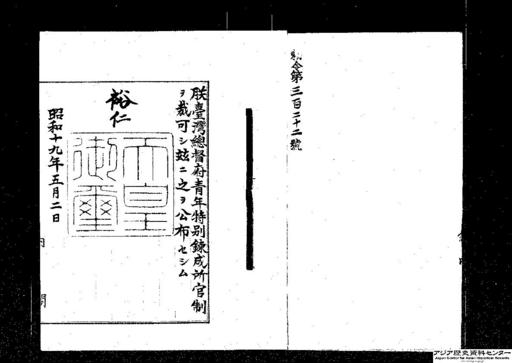 勅令第三百二十二號
朕臺灣總督府青年特別錬成所官制
ヲ裁可シ茲ニ之ヲ公布セシム
裕仁
天皇御璽
昭和十九年五月二日
内閣
アジア歴史資料センター
Japan Center for Asian Historical Records